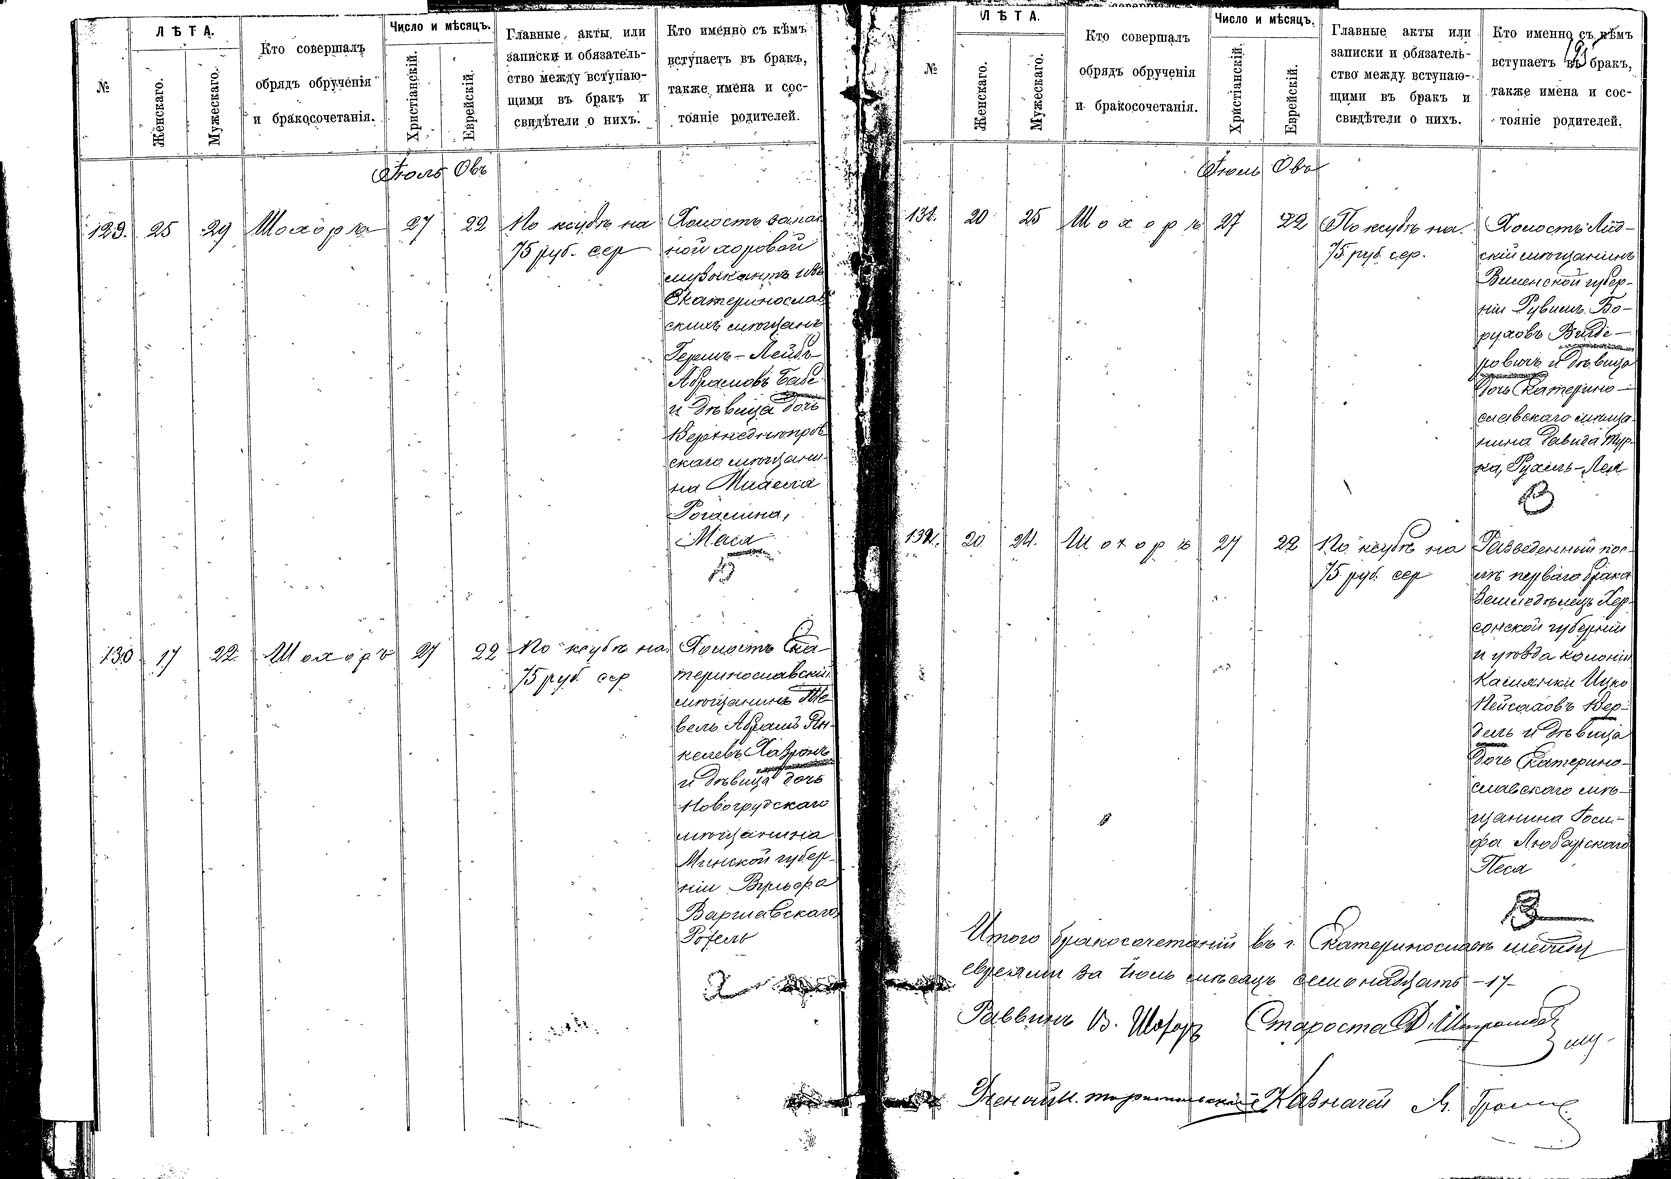 №
ЛѢТА.
Женскаго.
Мужескаго.
Кто совершалъ
обрядъ обрученія
и бракосочетанія.
Число и мѣсяцъ.
Христіанскій.
Еврейскій.
Главные акты или
записки и обязатель-
ство между вступаю-
щими въ бракъ и
свидѣтели о нихъ.
Кто именно съ кѣмъ
вступаетъ въ бракъ,
также имена и сос-
тояніе родителей.
Іюль Овъ
129. 25 29 Шохоръ 27 22
По ксубѣ на
75 руб. сер
Холостъ
ной хоровой
музыкантъ изъ
Екатеринослав
скихъ мѣщанъ
Гершъ-Лейбъ
Абрамовъ
и дѣвица дочь
Верхнеднѣпров
скаго мѣщани-
на
Рогалина,
Маса
130 17 22 Шохоръ 27 22
По ксубѣ на
75 руб. сер
Холостъ Ека-
теринославскій
мѣщанинъ
вель Абрамъ Ян-
келевъ
и дѣвица дочь
Новогрудскаго
мѣщанина
Минской губер-
ніи Вульфа
Варшавскаго
№
ЛѢТА.
Женскаго.
Мужескаго.
Кто совершалъ
обрядъ обрученія
и бракосочетанія.
Число и мѣсяцъ.
Христіанскій.
Еврейскій.
Главные акты или
записки и обязатель-
ство между вступаю-
щими въ бракъ и
свидѣтели о нихъ.
Кто именно съ кѣмъ
вступаетъ въ бракъ,
также имена и сос-
тояніе родителей.
Іюль Овъ
131. 20 25 Шохоръ 27 22
По ксубѣ на
75 руб. сер.
Холостъ Лид-
скій мѣщанинъ
Виленской губер-
ніи Рувимъ Бо-
руховъ
ровичъ и дѣвица
дочь Екатерино-
славскаго мѣща-
нина Давида Тур-
ка, Рухль-Лея
132. 20 24. Шохоръ 27 22
По ксубѣ на
75 руб. сер
Разведенный пос-
лѣ перваго брака
земледѣлецъ Хер-
сонской губерніи
и уѣзда колоніи
Ицко
Пейсаховъ Вер-
дель и дѣвица
дочь Екатерино-
славскаго мѣ-
щанина Іоси-
фа Любарскаго
Песа
Итого бракосочетаній въ г. Екатеринославѣ между
евреями за Іюль мѣсяцъ семнадцать -17-
Раввинъ В. Шохоръ Староста
Казначей